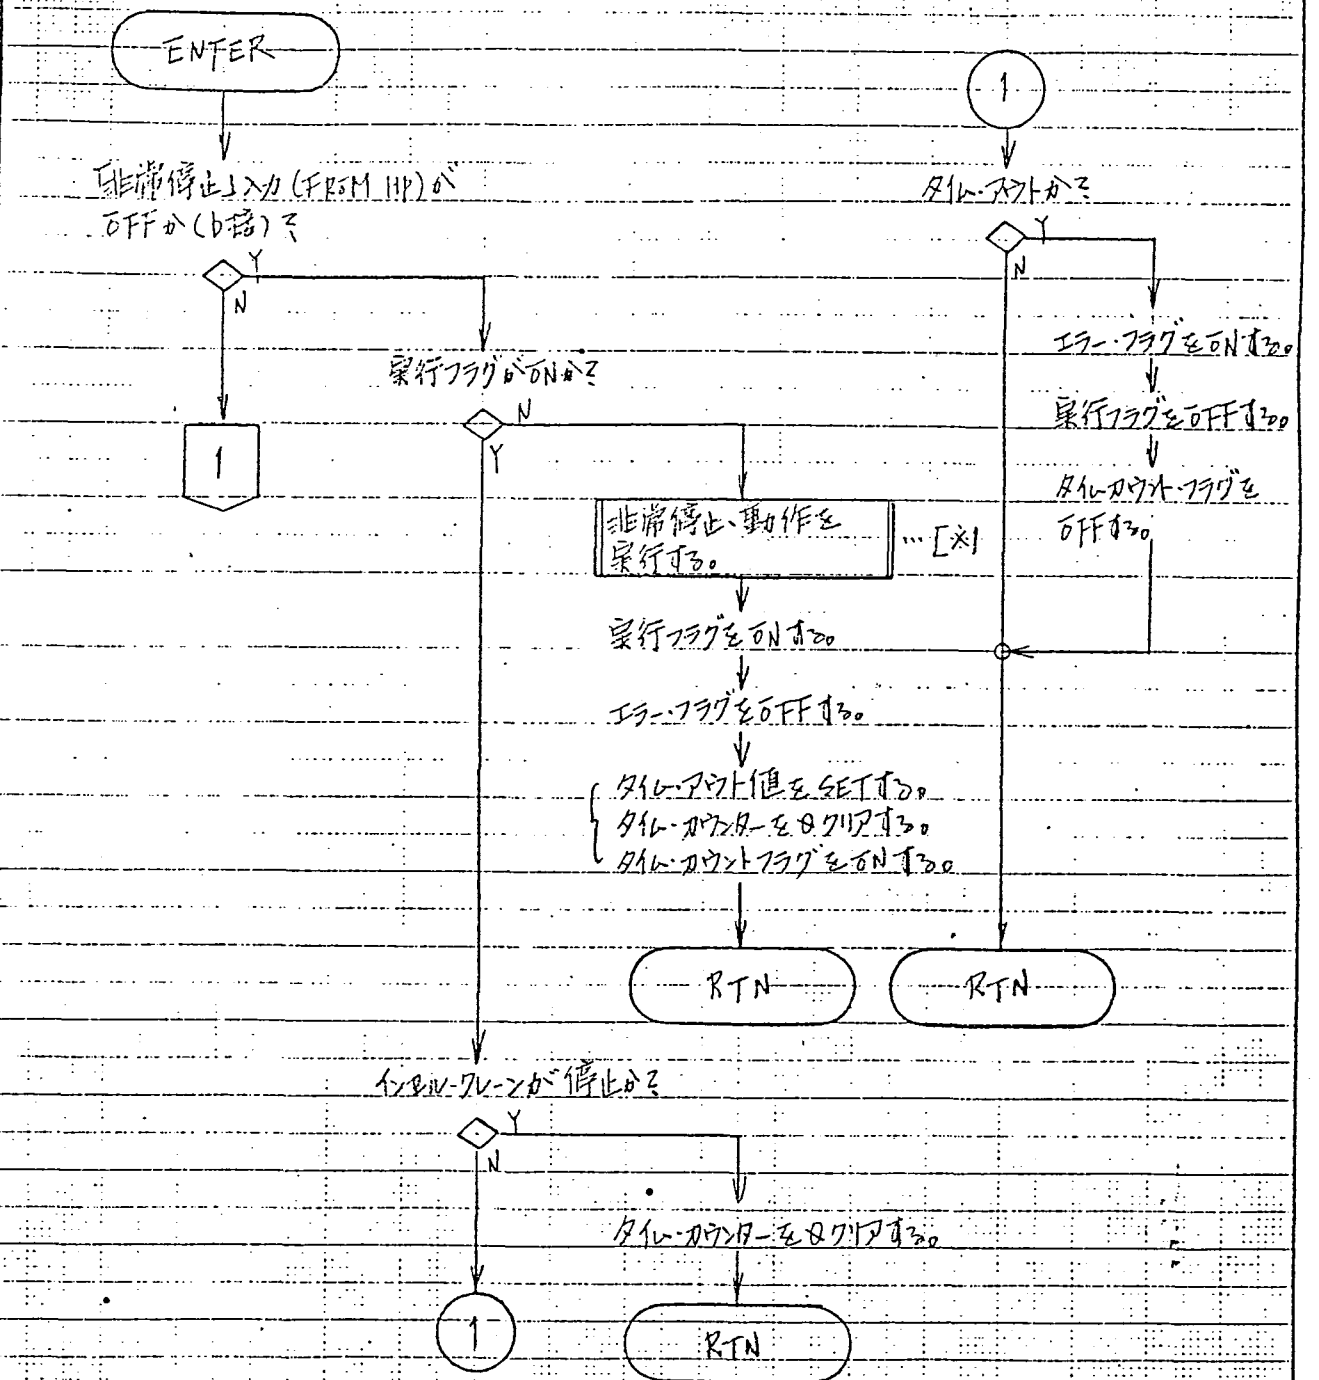 ENTER
「非常停止」入力(FROM HP)が
OFFか(b接)?
Y
N
1
実行フラグがONか?
N
Y
非常停止、動作を
実行する。
…[※]
実行フラグをONする。
エラー・フラグをOFFする。
タイム・アウト値をSETする。
タイム・カウンターを0クリアする。
タイム・カウントフラグをONする。
RTN
インセル-クレーンが停止か?
Y
N
1
タイム・カウンターを0クリアする。
RTN
1
タイム・アウトか?
Y
N
エラー・フラグをONする。
実行フラグをOFFする。
タイムカウント・フラグを
OFFする。
RTN